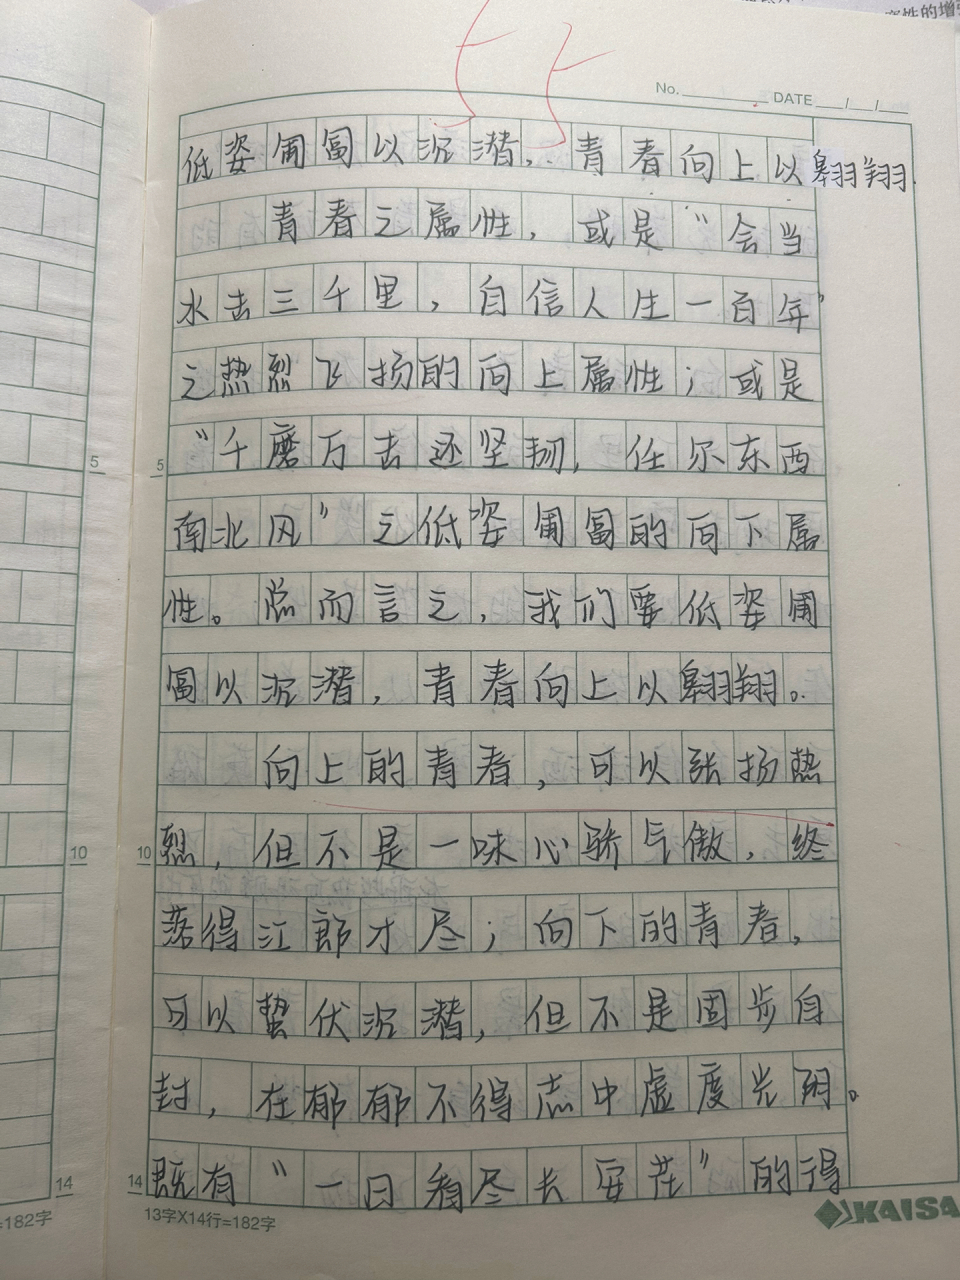 产性的增强
55
No. DATE / /
低姿匍匐以沉潜，青春向上以翱翔.
青春之属性，或是“会当
水击三千里，自信人生一百年”
之热烈飞扬的向上属性；或是
“千磨万击还坚韧，任尔东西
南北风”之低姿匍匐的向下属
性。总而言之，我们要低姿匍
匐以沉潜，青春向上以翱翔。
5
5
向上的青春，可以张扬热
烈，但不是一味心骄气傲，终
10
10
落得江郎才尽；向下的青春，
可以蛰伏沉潜，但不是固步自
封，在郁郁不得志中虚度光阴。
既有“一日看尽长安花”的得
14
14
=182字
13字X14行=182字
KAISA